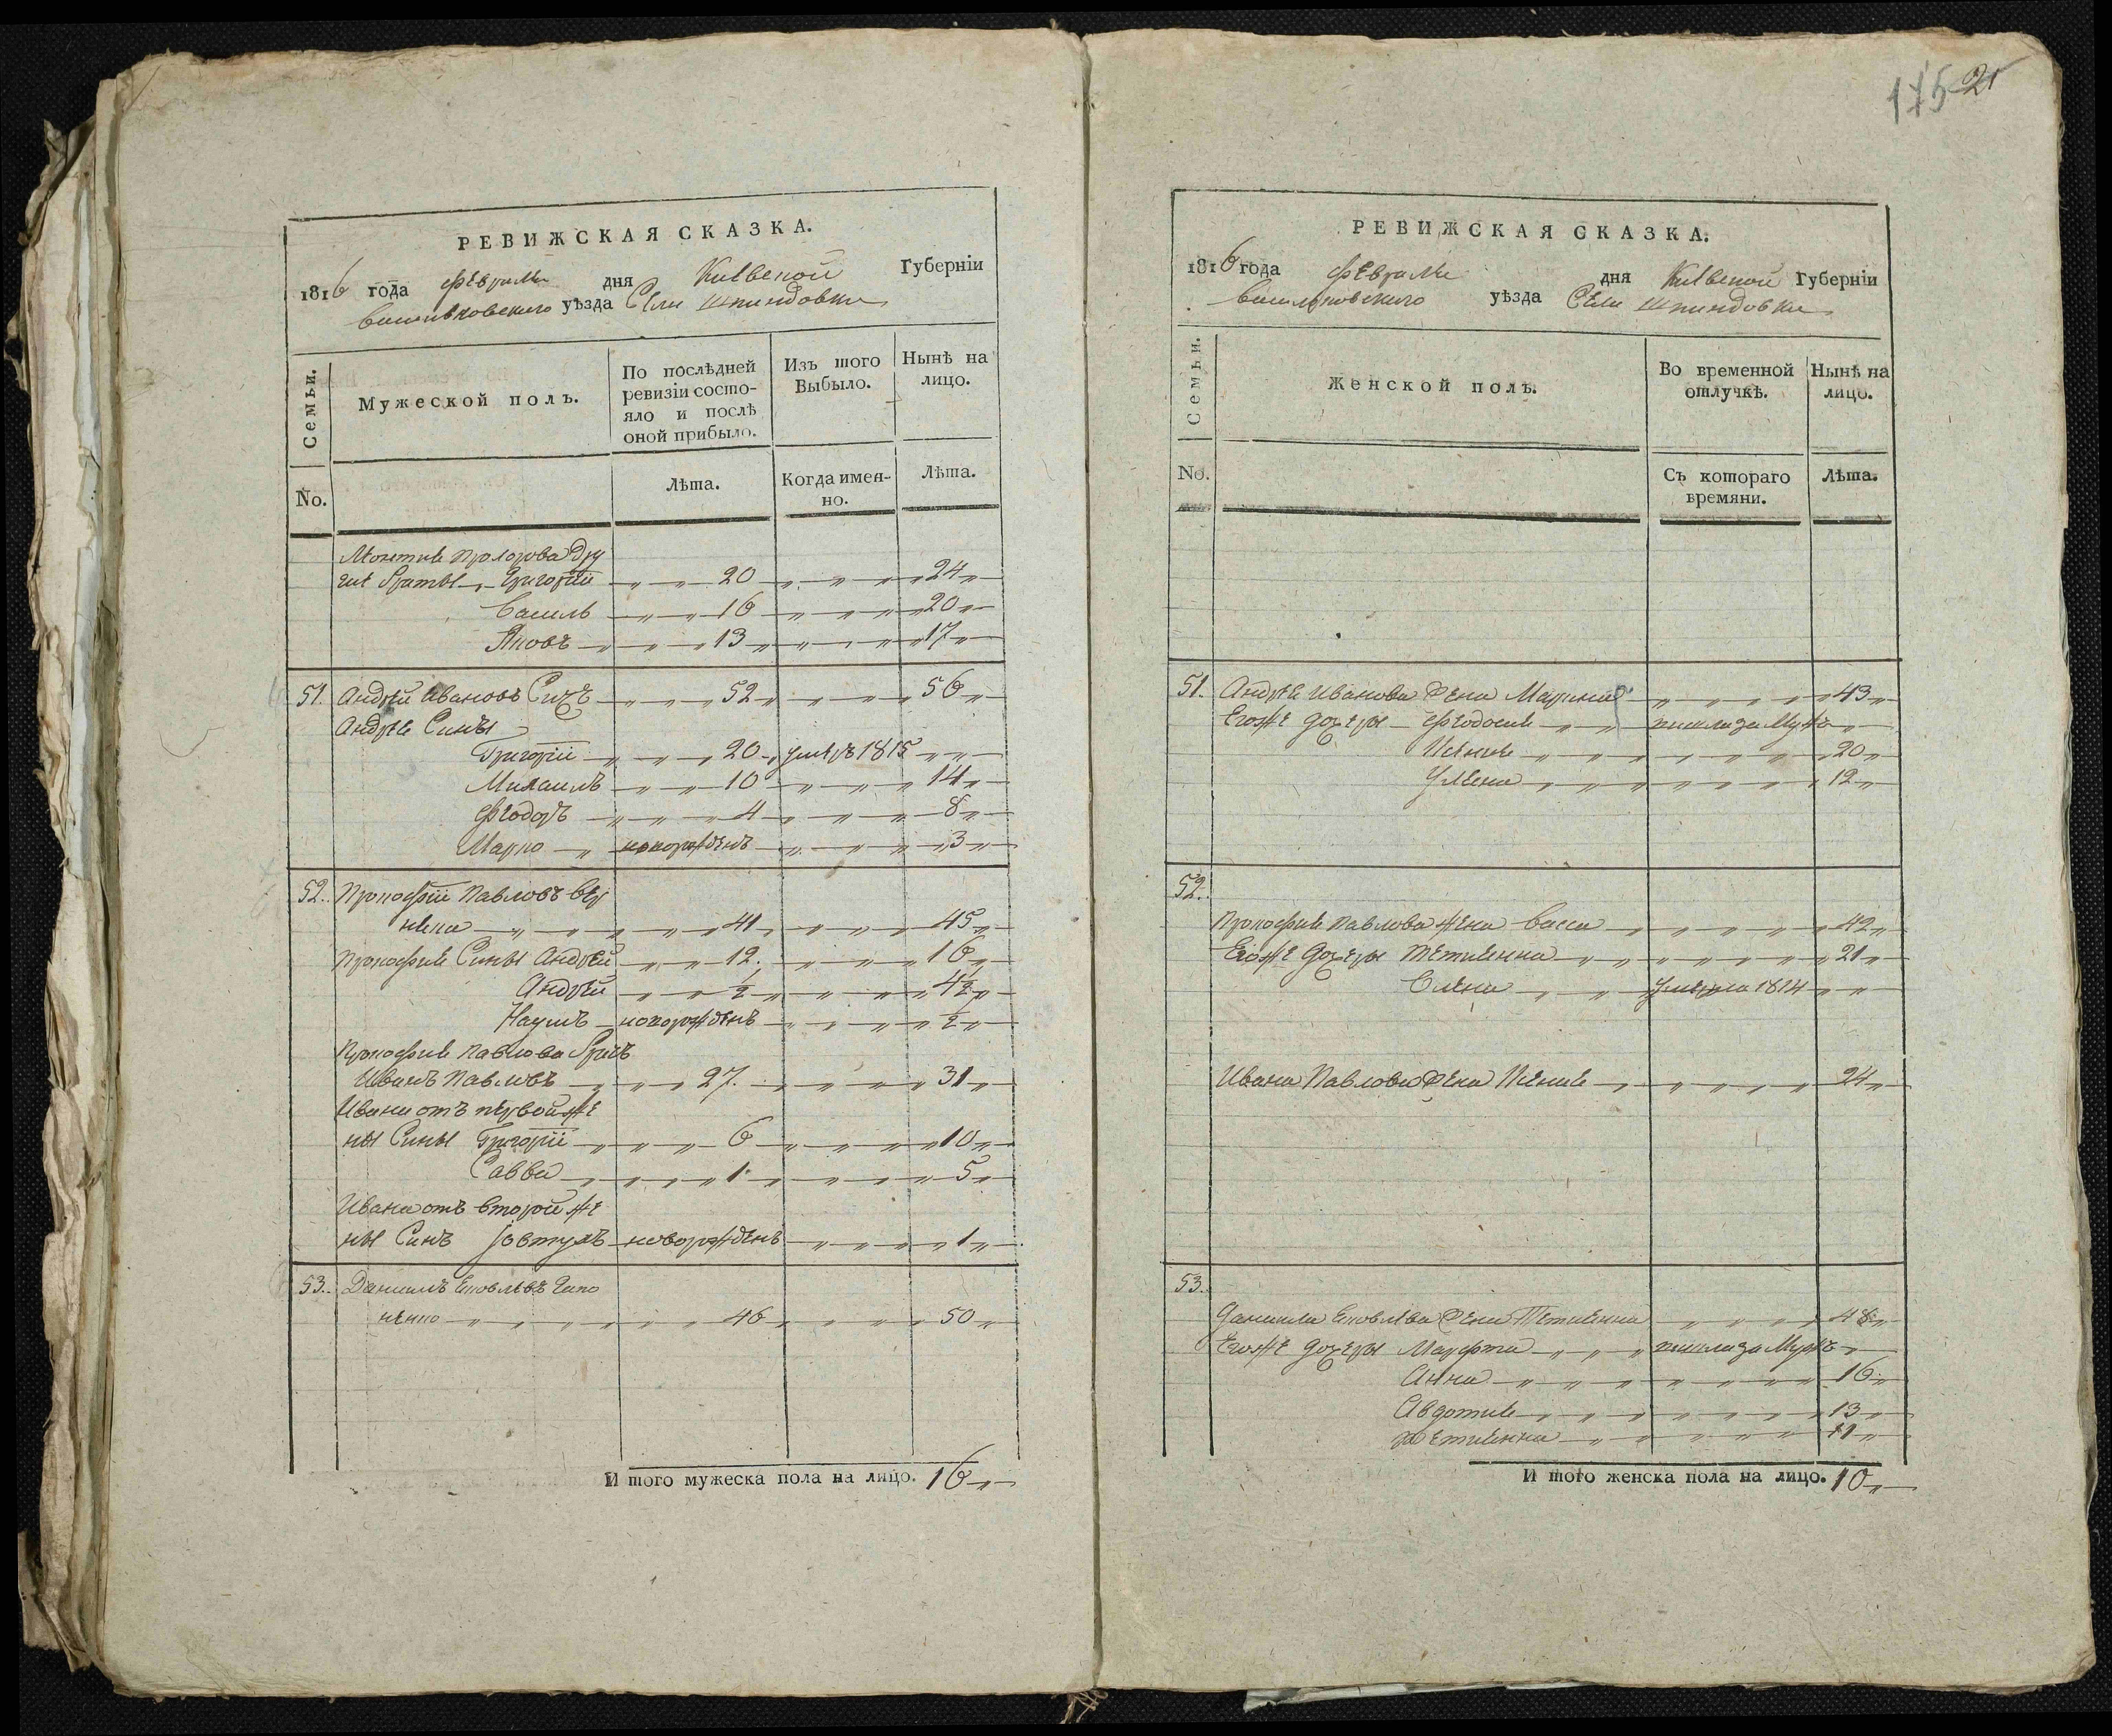 175 21
РЕВИЖСКАЯ СКАЗКА.
1816 года февраля дня Кіевской Губерніи
Васильковского уѣзда Села Шпиндовки
Семьи.
Мужеской полъ.
По послѣдней ревизіи состояло и послѣ оной прибыло.
Изъ того Выбыло.
Нынѣ на лицо.
No.
Лѣта.
Когда именно.
Лѣта.
Прохорова Дру
гие Браты Григорій 20 24
Василь 16 20
Яковъ 13 17
51. Андрѣй Ивановъ 52 56
Андрѣя Сины
Григорій 20 умѣръ 1815
Михаилъ 10 14
Фѣодоръ 4 8
Марко новорожденъ 3
52. Прокофій Павловъ Вер
41 45
Прокофия Сины Андрѣй 12. 16
Андрѣй ½ 4½
Наумъ новорожденъ ½
Прокофия Павлова Братъ
Иванъ Павловъ 27. 31
Ивана отъ первой же
ны Сины Григорій 6 10
Савва 1 5
Ивана отъ второй же
ны Синъ Іовтухъ новорожденъ 1
53. Данiилъ Яковлевъ Гапо
ненко 46 50
И того мужеска пола на лицо. 16
РЕВИЖСКАЯ СКАЗКА.
1816 года февраля дня Кіевской Губерніи
Васильковского уѣзда Села Шпиндовки
Семьи.
Женской полъ.
Во временной отлучкѣ.
Нынѣ на лицо.
No.
Съ котораго времяни.
Лѣта.
51. Андрѣя Иванова Жена Марина 43
Егоже дочеры Фѣодосия пошла за Мужъ
Ксения 20
Улияна 12
52.
Прокофия Павлова жена Васса 42
Егоже дочеры Тетиянна 21
Олена умерла 1814
Ивана Павлова Жена Ксения 24
53.
Данила Яковлева Жена Тетиянна 48
Егоже дочеры Марфта пошла за Мужъ
Анна 16
Авдотия 13
Тетиянна 11
И того женска пола на лицо. 10